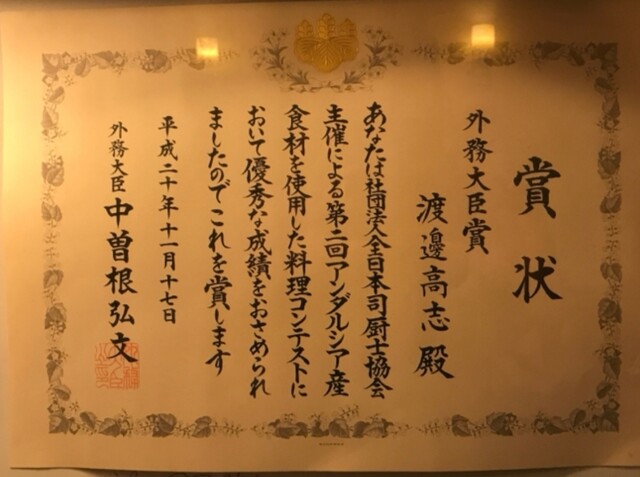 賞状
外務大臣賞
渡邊高志殿
あなたは社団法人全日本司厨士協会
主催による第二回アンダルシア産
食材を使用した料理コンテストに
おいて優秀な成績をおさめられ
ましたのでこれを賞します
平成二十年十一月十七日
外務大臣 中曽根弘文